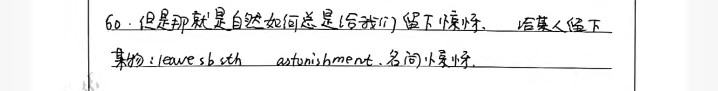 60. 但是那就是自然如何总是给我们留下惊讶. 给某人留下
某物: leave sb sth astonishment. 名词惊讶.